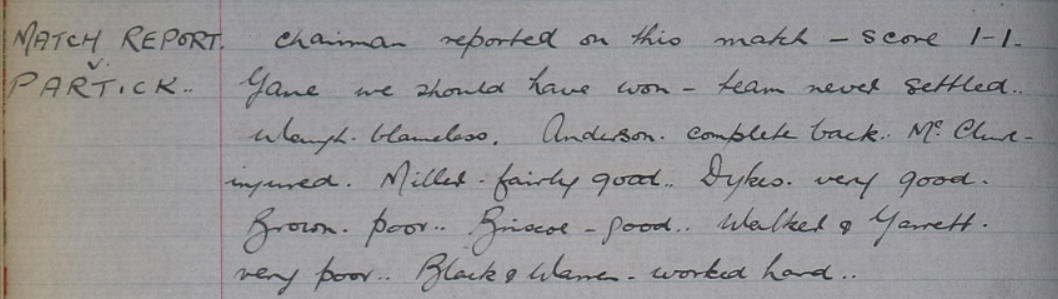 MATCH REPORT. Chairman reported on this match – score 1-1.
v.
PARTICK.. Game we should have won – team never settled..
Waugh. blameless. Anderson. complete back.. Mc Clure -
injured. Miller - fairly good.. Dykes. very good.
Brown. poor.. Briscoe – good.. Walker & Garrett.
very poor.. Black & Warren - worked hard..